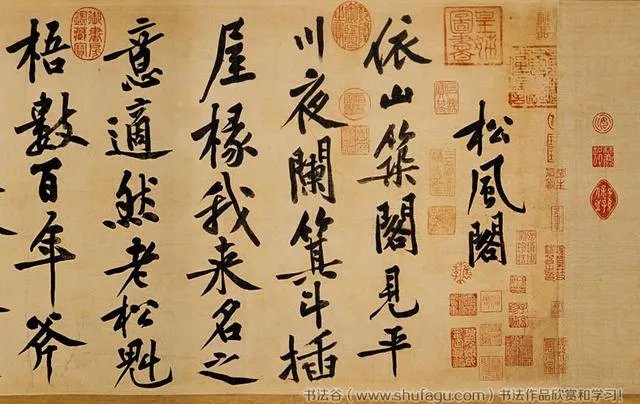 皇姊圖書
松風閣
依山築閣見平
川夜闌箕斗插
屋椽我來名之
意適然老松魁
梧數百年斧
御書房鑑藏寶
书法谷（www.shufagu.com）书法作品欣赏和学习！